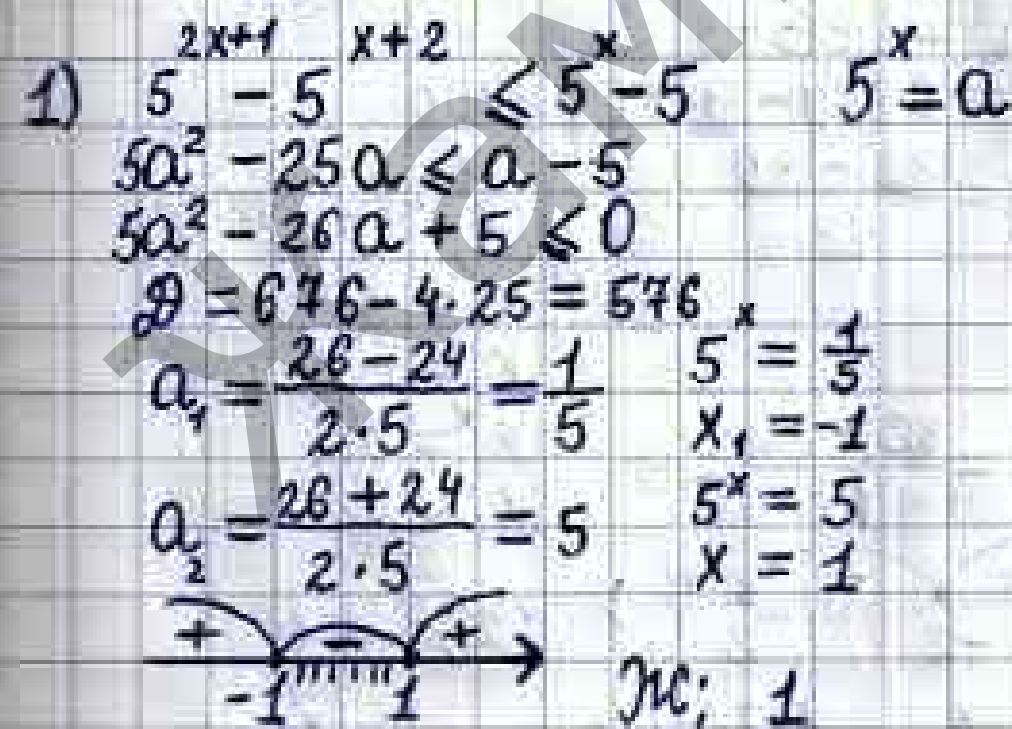 1) 5^{2x+1} - 5^{x+2} ≤ 5^x - 5    5^x = a
5a² - 25a ≤ a - 5
5a² - 26a + 5 ≤ 0
D = 676 - 4·25 = 576
a₁ = (26 - 24)/(2·5) = 1/5    5^x = 1/5
x₁ = -1
a₂ = (26 + 24)/(2·5) = 5    5^x = 5
x = 1
+ - +
-1 1    Ж; 1